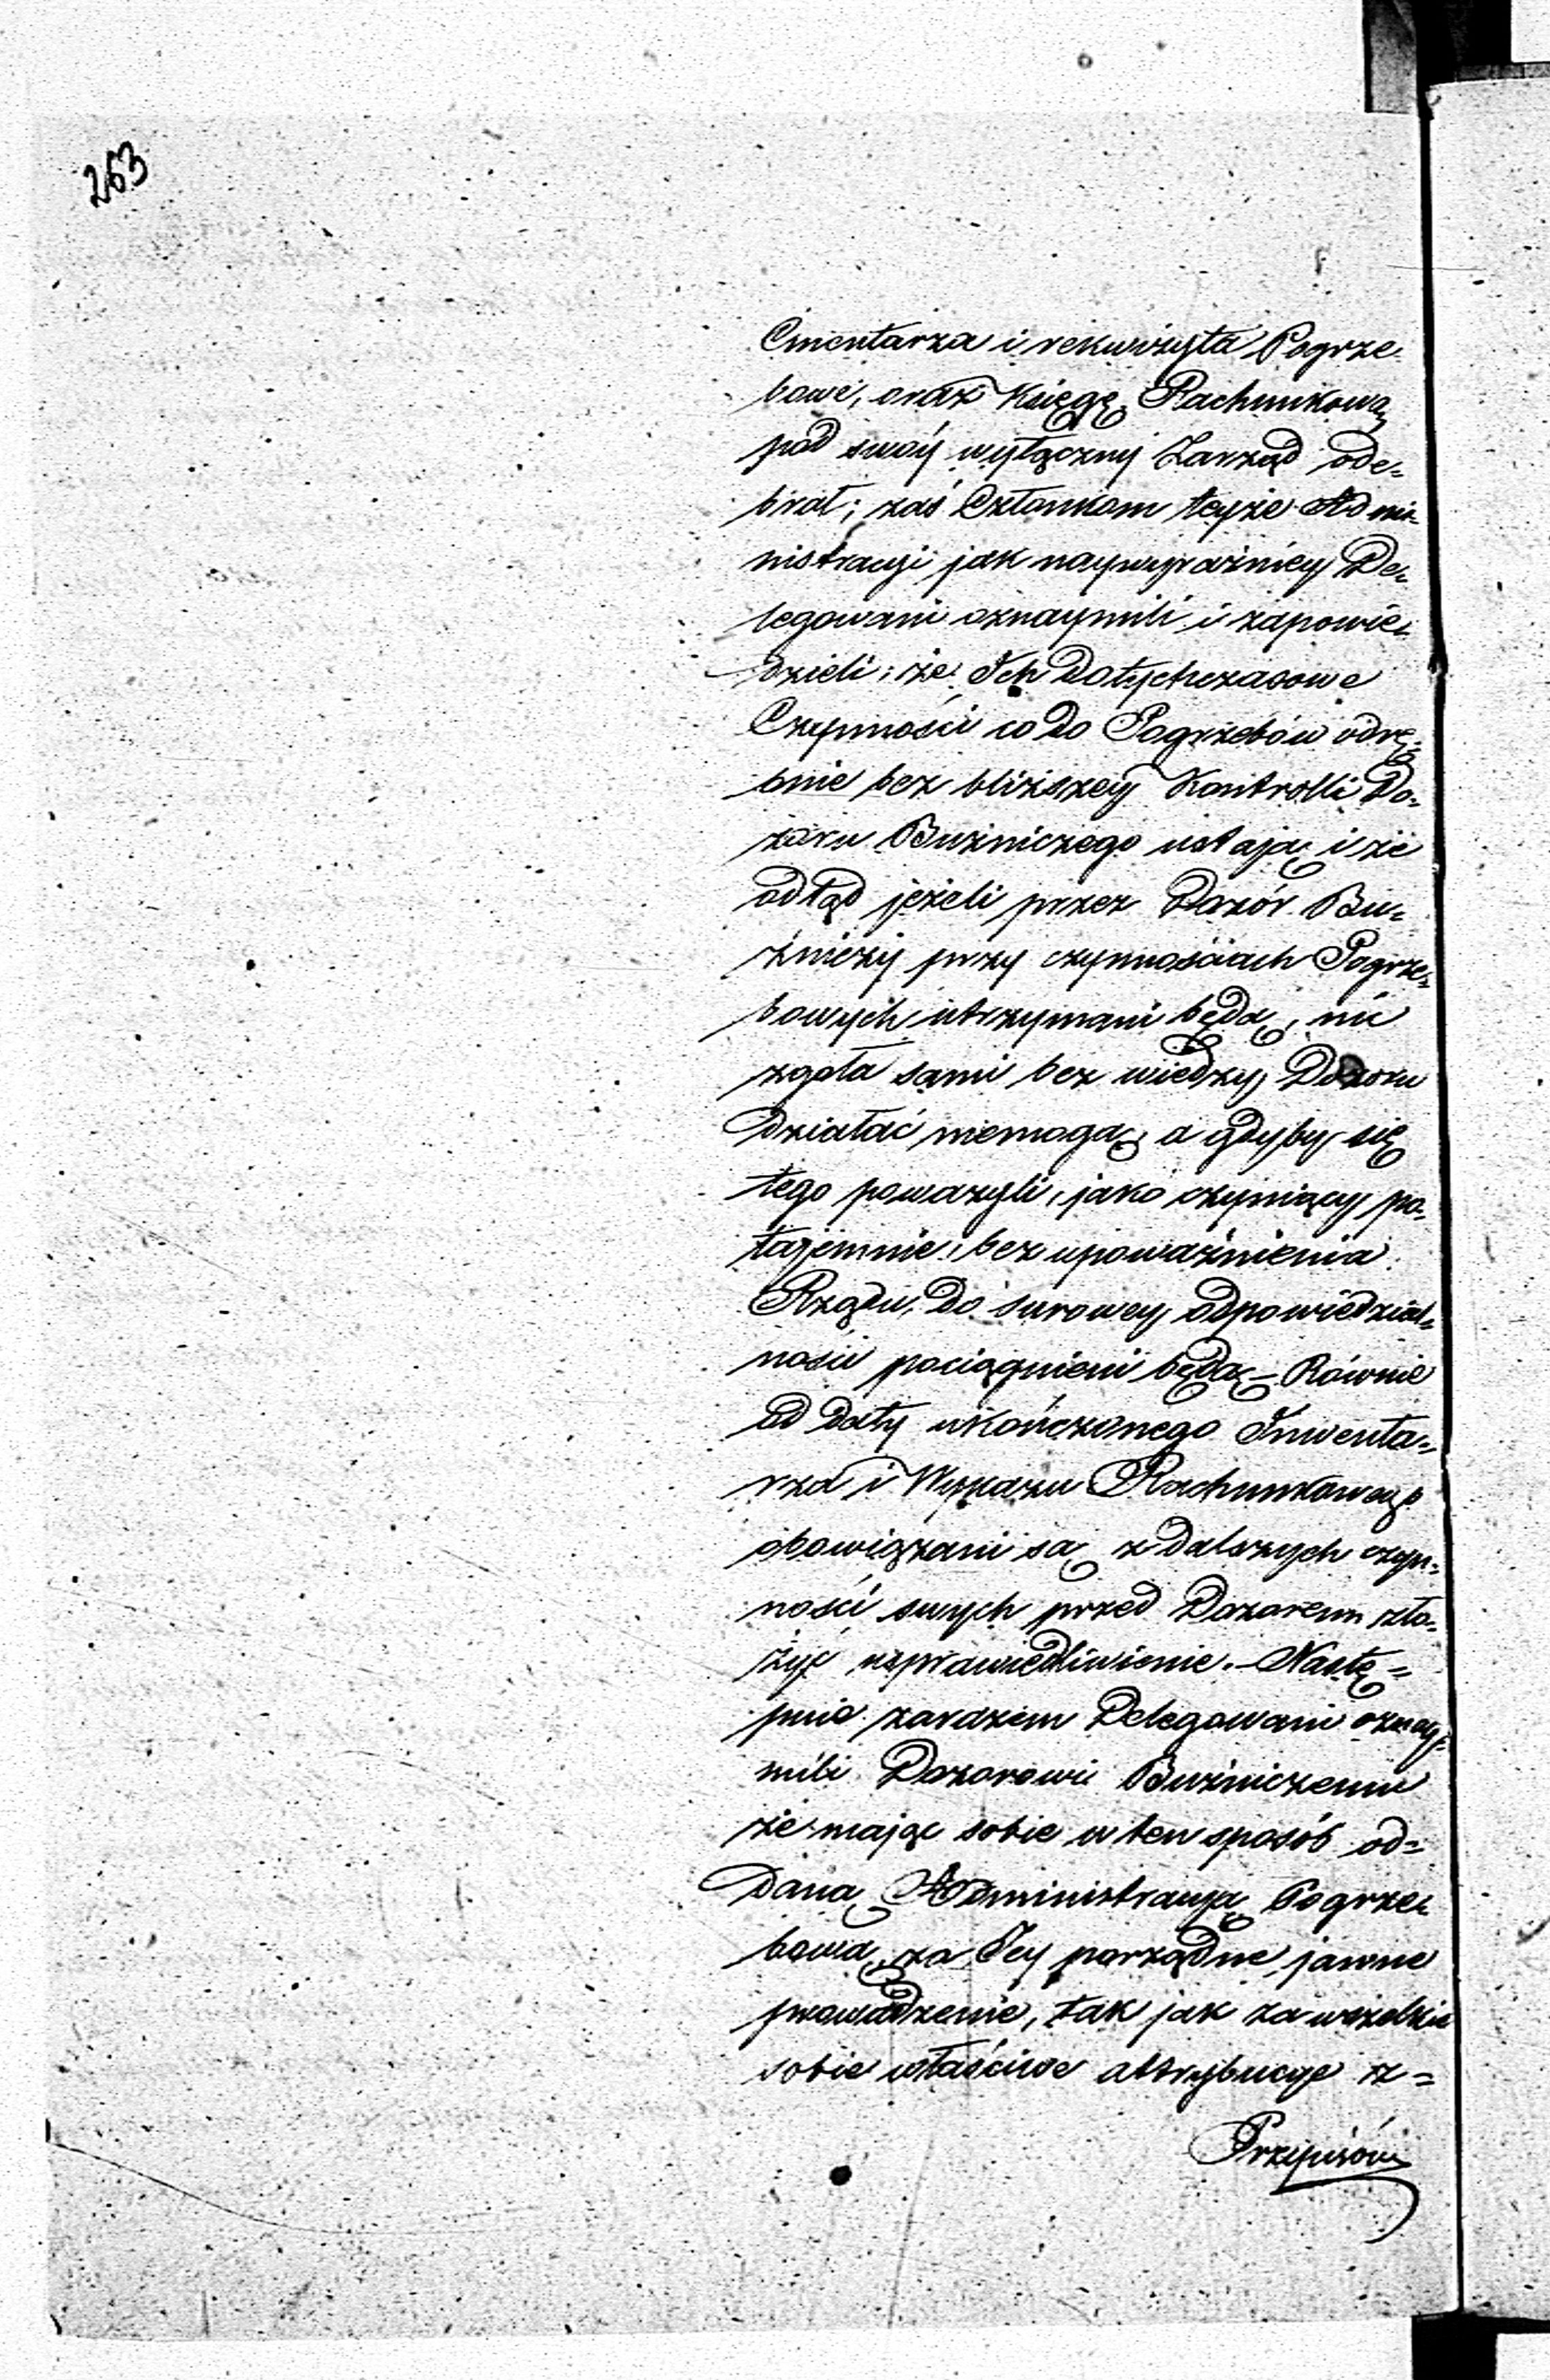 263
Cmentarza i rekwizyta Pogrze-
bowe, oraz Księgę Rachunkową
pod swóy wyłączny Zarząd ode-
brał; zaś Członkom teyże Admi-
nistracyi jak naywyraźniey De-
legowani oznaymili i zapowie-
dzieli: że Ich Dotychczasowe
Czynności co do Pogrzebów odrę-
bnie bez bliższey Kontrolli Do-
zoru Buźniczego ustają i że
odtąd jeżeli przez Dozór Bu-
źniczy przy czynnościach Pogrze-
bowych utrzymani będą, nic
zgoła sami bez wiedzy Dozoru
Działać niemogą, a gdyby się
tego poważyli, jako czyniący po-
tajemnie, bez upoważnienia
Rządu, Do surowey odpowiedzial-
ności pociągnieni będą – Równie
od Daty ukończonego Inwenta-
rza i Wykazu Rachunkowego
obowiązani są z Dalszych czyn-
ności swych przed Dozorem zło-
żyć usprawiedliwienie. – Nastę=
pnie zarazem Delegowani oznay-
mili Dozorowi Buźniczemu
że mając sobie w ten sposób od=
Daną Administracyą Pogrze-
bową, za Jey porządne, jawne
prowadzenie, tak jak za wszelkie
sobie właściwe attrybucye z=
Przepisów